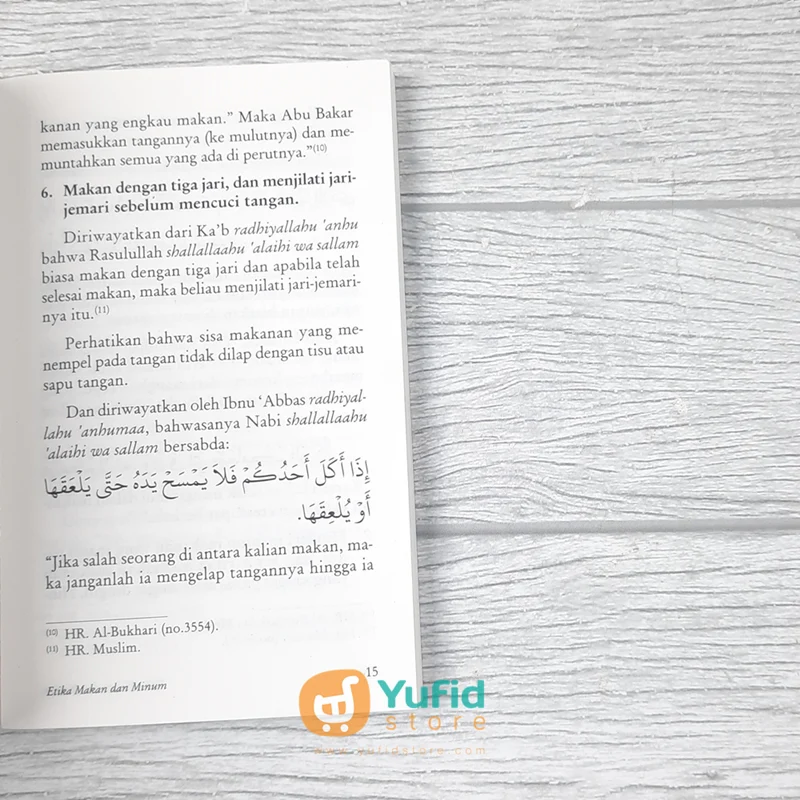 kanan yang engkau makan.” Maka Abu Bakar
memasukkan tangannya (ke mulutnya) dan me-
muntahkan semua yang ada di perutnya.”(10)
6. Makan dengan tiga jari, dan menjilati jari-
jemari sebelum mencuci tangan.
Diriwayatkan dari Ka’b radhiyallahu 'anhu
bahwa Rasulullah shallallaahu 'alaihi wa sallam
biasa makan dengan tiga jari dan apabila telah
selesai makan, maka beliau menjilati jari-jemari-
nya itu.(11)
Perhatikan bahwa sisa makanan yang me-
nempel pada tangan tidak dilap dengan tisu atau
sapu tangan.
Dan diriwayatkan oleh Ibnu ‘Abbas radhiyal-
lahu 'anhumaa, bahwasanya Nabi shallallaahu
'alaihi wa sallam bersabda:
إِذَا أَكَلَ أَحَدُكُمْ فَلاَ يَمْسَحْ يَدَهُ حَتَّى يَلْعَقَهَا
أَوْ يُلْعِقَهَا.
“Jika salah seorang di antara kalian makan, ma-
ka janganlah ia mengelap tangannya hingga ia
(10) HR. Al-Bukhari (no.3554).
(11) HR. Muslim.
15
Etika Makan dan Minum
Yufid
store
www.yufidstore.com